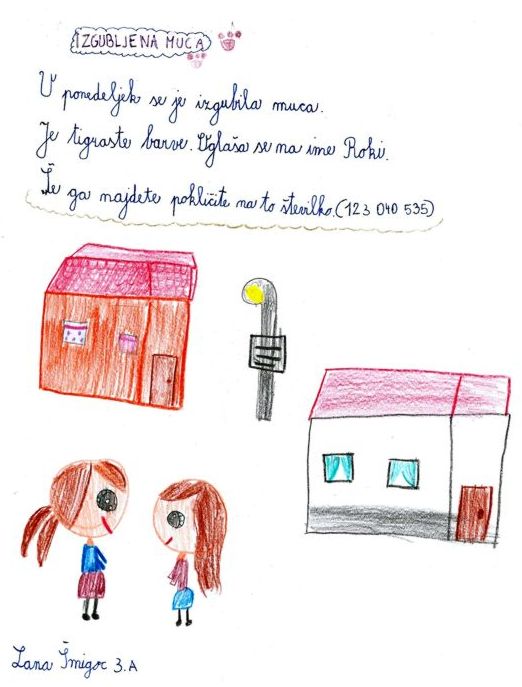 IZGUBLJENA MUCA
V ponedeljek se je izgubila muca.
Je tigraste barve. Oglaša se na ime Roki.
Če ga najdete pokličite na to številko. (123 040 535)
Lana Šmigoc 3.A